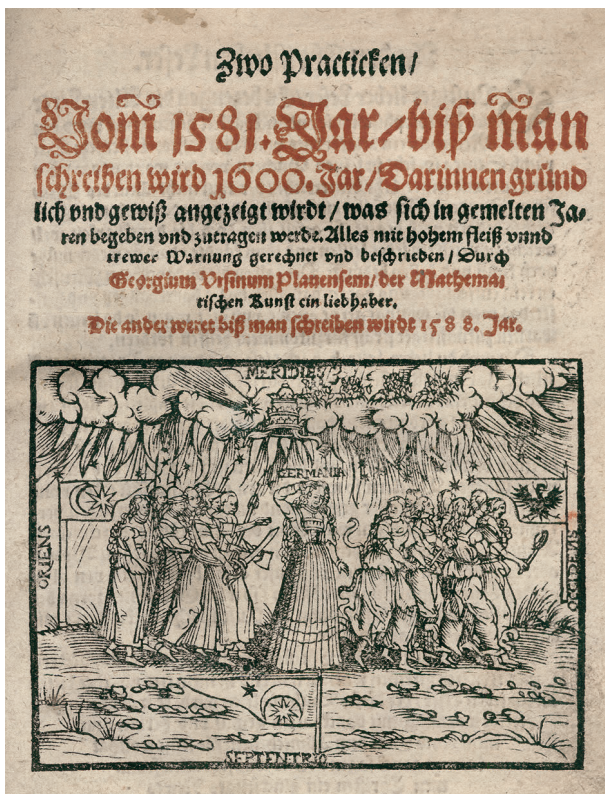 Zwo Practicken/
Vom̃ 1581. Jar/ biß m̃an
schreiben wird 1600. Jar/ Darinnen gründ
lich vnd gewiß angezeigt wirdt/ was sich in gemelten Ja⸗
ren begeben vnd zutragen werde. Alles mit hohem fleiß vnnd
trewer Warnung gerechnet vnd beschrieden/ Durch
Georgium Vrsinum Plauensem/ der Mathema⸗
tischen Kunst ein liebhaber.
Die ander weret biß man schreiben wirdt 1588. Jar.
MERIDIES
GERMANIA
ORIENS
OCCIDENS
SEPTENTRIO